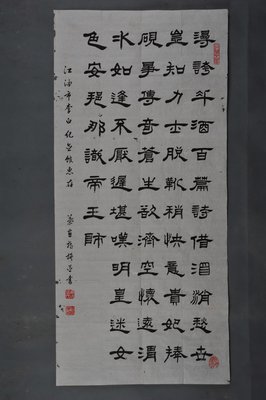 漫誇斗酒百篇詩借酒消愁世
豈知力士脫靴稍快意貴妃捧
硯爭傳奇蒼生欲濟空懷遠渭
水如逢不厭遲堪嘆明皇迷女
色安邦那識帝王師
江油市李白紀念館惠存
書